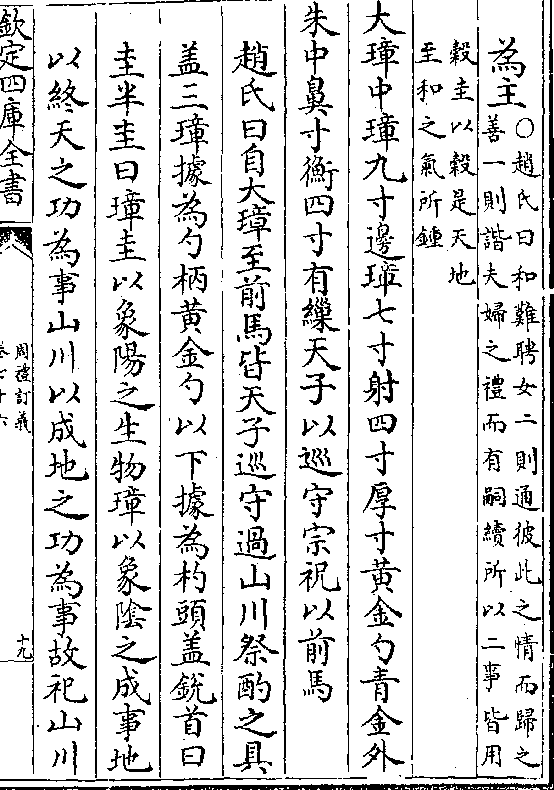 為主○趙氏曰和難聘女二則通彼此之情而歸之
善一則諧夫婦之禮而有嗣續所以二事皆用
穀圭以穀是天地
至和之氣所鍾
大璋中璋九寸邊璋七寸射四寸厚寸黃金勺青金外
朱中鼻寸衡四寸有繅天子以巡守宗祝以前馬
趙氏曰自大璋至前馬皆天子巡守過山川祭酌之具
盖三璋據為勺柄黃金勺以下據為杓頭盖銳首曰
圭半圭曰璋圭以象陽之生物璋以象陰之成事地
以終天之功為事山川以成地之功為事故祀山川
欽定四庫全書
周禮訂義
卷七十六
十九